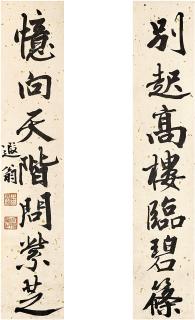 別起高樓臨碧篠
憶向天階問紫芝
遐翁